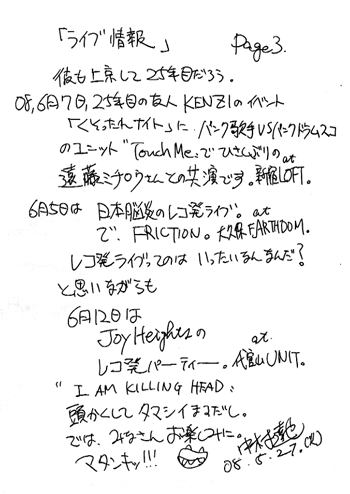 「ライブ情報」 Page3.
彼も上京して25年目だろう。
08,6月7日,25年目の友人 KENZIのイベント
「くそったれナイト」に パンク歌手VSパンクドラムスコ
のユニット"TouchMe"で ひさしぶりの
遠藤ミチロウさんとの共演です。at 新宿LOFT。
6月5日は 日本脳炎のレコ発ライブ。at
で、FRICTION。大久保EARTHDOM。
レコ発ライブってのは いったいなんなんだ?
と思いながらも
6月12日は
JoyHeightsの at
レコ発パーティー。代官山UNIT。
"I AM KILLING HEAD、
頭かくして タマシイまるだし。
では、みなさんお楽しみに。
マタンキッ!!! 中村達也
08.5.27.(火)